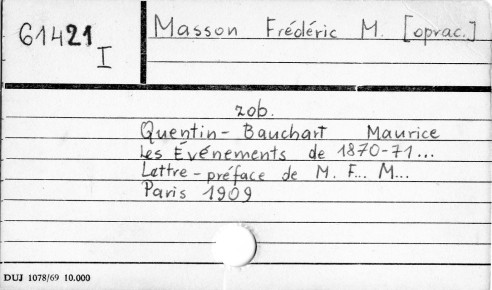 61421
I
Masson Frédéric M. [oprac.]
zob.
Quentin-Bauchart Maurice
Les Événements de 1870-71...
Lettre-préface de M. F... M...
Paris 1909
DUJ 1078/69 10.000